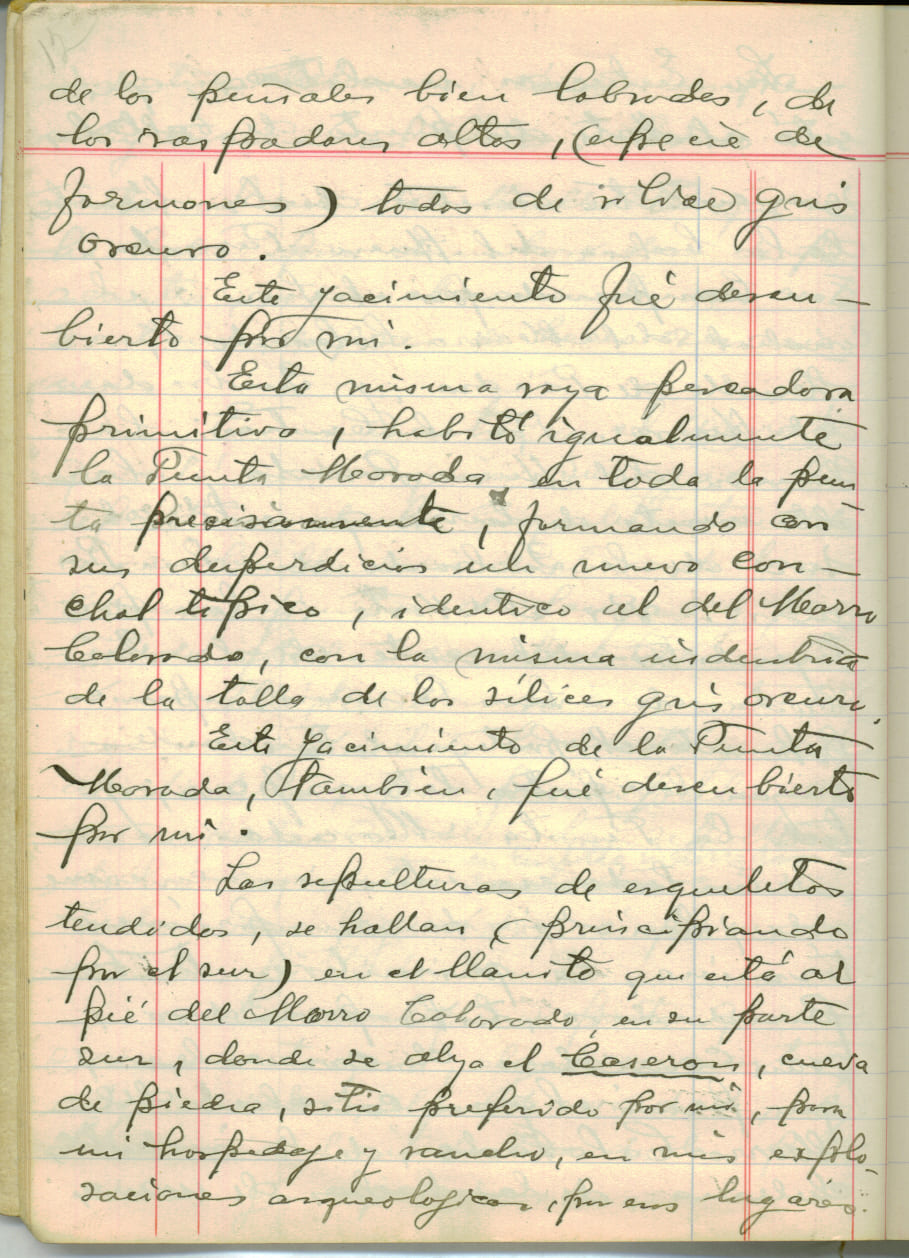 12
de los puñales bien labrados, de
los raspadores altos, (especie de
formones) todos de silice gris
oscuro.
Este yacimiento fué descu-
bierto por mi.
Esta misma raza pescadora
primitiva, habitó igualmente
la Punta Morada, en toda la pun-
ta precisamente, formando con
sus desperdicios un nuevo con-
chal tipico, identico al del Morro
Colorado, con la misma industria
de la talla de los sílices gris oscuro.
Este yacimiento de la Punta
Morada, tambien, fué descubierto
por mi.
Las sepulturas de esqueletos
tendidos, se hallan, (principiando
por el sur) en el llanito que está al
pié del Morro Colorado, en su parte
sur, donde se alza el Caseron, cueva
de piedra, sitio preferido por mi, para
mi hospedaje y rancho, en mis explo-
raciones arqueologicas, por esos lugares.